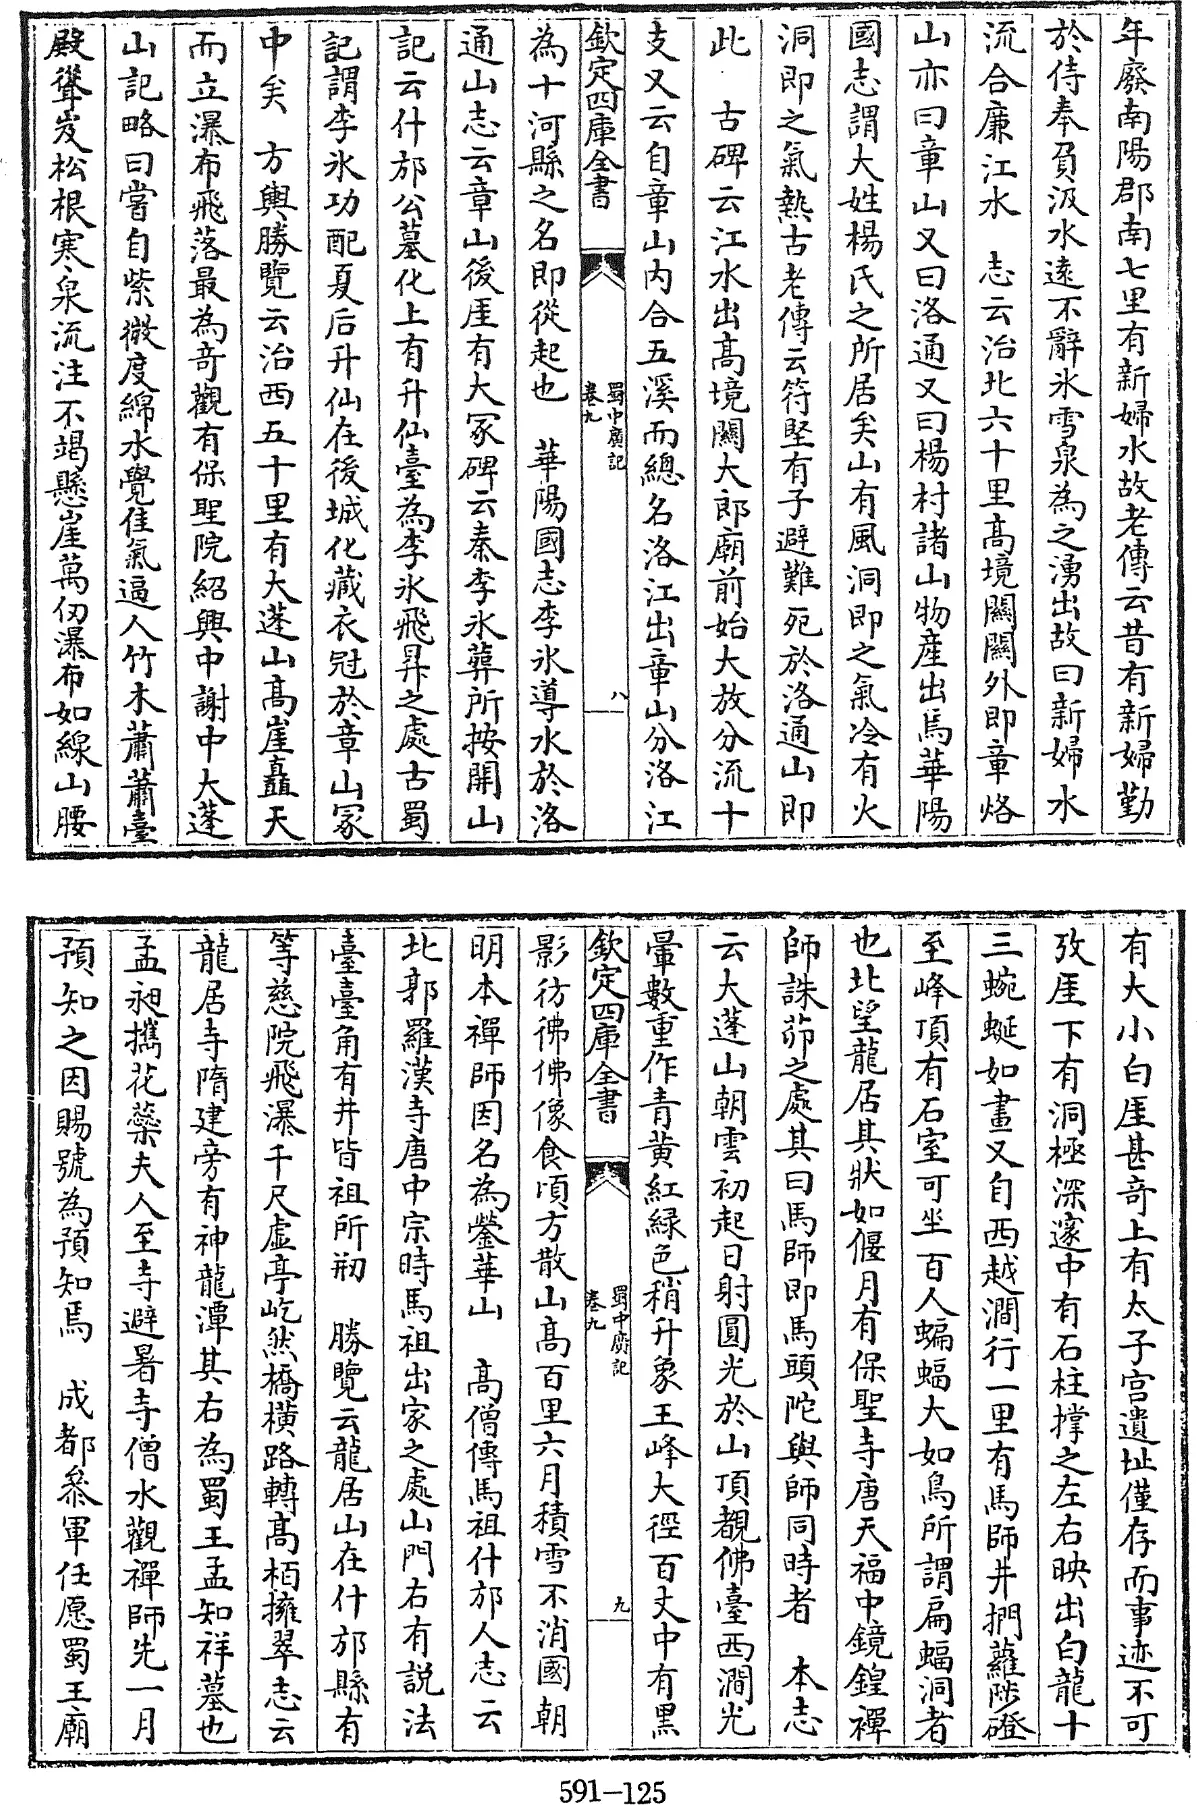 年廢南陽郡南七里有新婦水故老傳云昔有新婦勤
於侍奉負汲水逺不辭氷雪泉為之湧出故曰新婦水
流合廉江水　志云治北六十里髙境關關外即章烙
山亦曰章山又曰洛通又曰楊村諸山物產出焉華陽
國志謂大姓楊氏之所居矣山有風洞即之氣冷有火
洞即之氣熱古老傳云符堅有子避難死於洛通山即
此　古碑云江水出髙境關大郎廟前始大放分流十
支又云自章山内合五溪而總名洛江出章山分洛江
欽定四庫全書
蜀中廣記
卷九
八
為十河縣之名即從起也　華陽國志李氷導水於洛
通山志云章山後厓有大冢碑云秦李氷葬所按開山
記云什邡公墓化上有升仙臺為李氷飛昇之處古蜀
記謂李氷功配夏后升仙在後城化藏衣冠於章山冢
中矣　方輿勝覽云治西五十里有大蓬山髙崖矗天
而立瀑布飛落最為竒觀有保聖院紹興中謝中大蓬
山記略曰嘗自紫微度綿水覺佳氣逼人竹木蕭蕭臺
殿聳岌松根寒泉流注不竭懸崖萬仞瀑布如線山腰
有大小白厓甚竒上有太子宫遺址僅存而事迹不可
攷厓下有洞極深邃中有石柱撑之左右映出白龍十
三蜿蜒如畫又自西越澗行一里有馬師井捫蘿陟磴
至峰頂有石室可坐百人蝙蝠大如鳥所謂扁蝠洞者
也北望龍居其狀如偃月有保聖寺唐天福中鏡鍠禪
師誅茆之處其曰馬師即馬頭陀與師同時者　本志
云大蓬山朝雲初起日射圓光於山頂覩佛臺西澗光
暈數重作青黄紅緑色稍升象王峰大徑百丈中有黑
欽定四庫全書
蜀中廣記
卷九
九
影彷彿佛像食頃方散山髙百里六月積雪不消國朝
明本禪師因名為蓥華山　髙僧傳馬祖什邡人志云
北郭羅漢寺唐中宗時馬祖出家之處山門右有説法
臺臺角有井皆祖所剏　勝覽云龍居山在什邡縣有
等慈院飛瀑千尺虚亭屹然橋横路轉髙栢擁翠志云
龍居寺隋建旁有神龍潭其右為蜀王孟知祥墓也
孟昶攜花蘂夫人至寺避暑寺僧水觀禪師先一月
預知之因賜號為預知焉　成都叅軍任愿蜀王廟
591-125